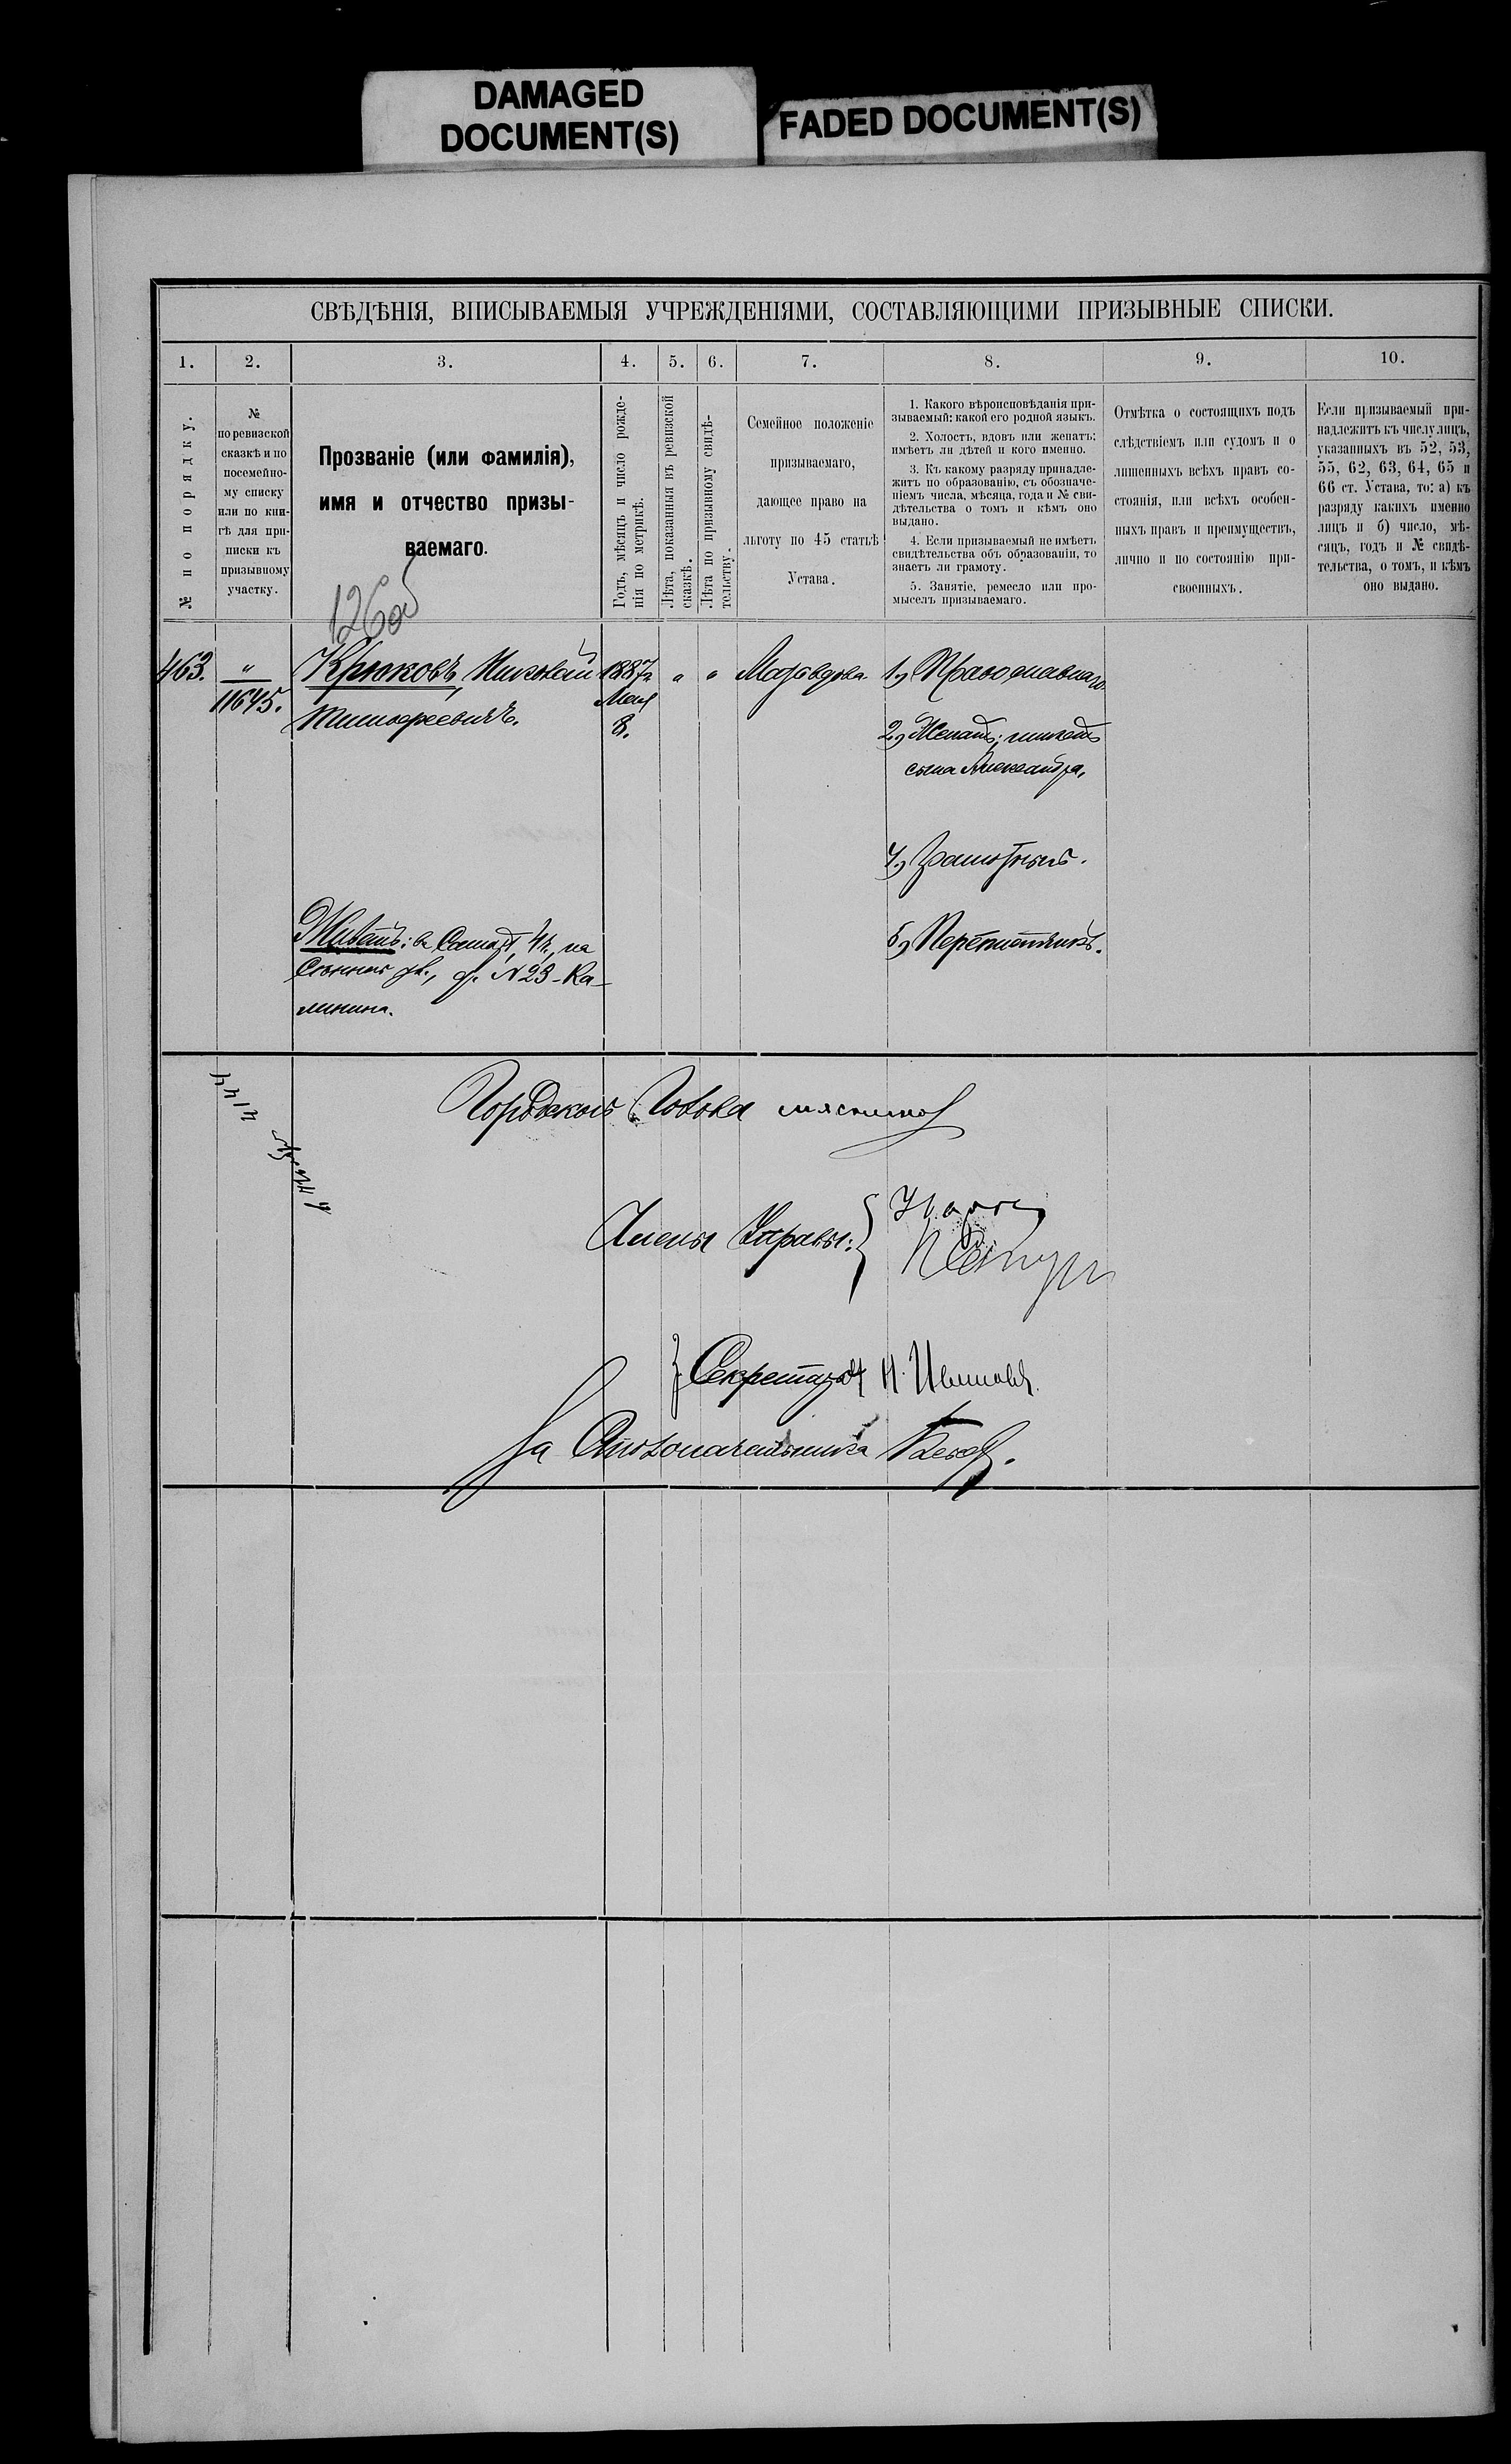 DAMAGED
DOCUMENT(S)
FADED DOCUMENT(S)
СВѢДѢНІЯ, ВПИСЫВАЕМЫЯ УЧРЕЖДЕНІЯМИ, СОСТАВЛЯЮЩИМИ ПРИЗЫВНЫЕ СПИСКИ.
1. 2. 3. 4. 5. 6. 7. 8. 9. 10.
№ по порядку.
№
по ревизской
сказкѣ и по
посемейно-
му списку
или по кни-
гѣ для при-
писки къ
призывному
участку.
Прозваніе (или фамилія),
имя и отчество призы-
ваемаго.
Годъ, мѣсяцъ и число рожде-
нія по метрикѣ.
Лѣта, показанныя въ ревизской
сказкѣ.
Лѣта по призывному свидѣ-
тельству.
Семейное положеніе
призываемаго,
дающее право на
льготу по 45 статьѣ
Устава.
1. Какого вѣроисповѣданія при-
зываемый: какой его родной языкъ.
2. Холостъ, вдовъ или женатъ;
имѣетъ ли дѣтей и кого именно.
3. Къ какому разряду принадле-
житъ по образованію, съ обозначе-
ніемъ числа, мѣсяца, года и № сви-
дѣтельства о томъ и кѣмъ оно
выдано.
4. Если призываемый не имѣетъ
свидѣтельства объ образованіи, то
знаетъ ли грамоту.
5. Занятіе, ремесло или про-
мыселъ призываемаго.
Отмѣтка о состоящихъ подъ
слѣдствіемъ или судомъ и о
лишенныхъ всѣхъ правъ со-
стоянія, или всѣхъ особен-
ныхъ правъ и преимуществъ,
лично и по состоянію при-
своенныхъ.
Если призываемый при-
надлежитъ къ числу лицъ,
указанныхъ въ 52, 53,
55, 62, 63, 64, 65 и
66 ст. Устава, то: а) къ
разряду какихъ именно
лицъ и б) число, мѣ-
сяцъ, годъ и № свидѣ-
тельства, о томъ, и кѣмъ
оно выдано.
126об
463. " Крюковъ, Николай 1887г. " " 1, Православнаго.
11645. Тимофеевичъ. Мая
8.
2, Женатъ; имѣетъ
сына Александра.
4, Грамотный.
Живетъ: въ Самарѣ, 4 ч., на
Сѣнной пл., д. № 23 - Ка-
линина.
5, Переплетчикъ.
Городской Голова
Члены Управы: {
Секретарь
За Столоначальника